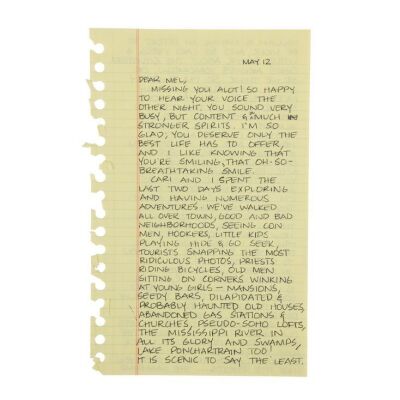 MAY 12
DEAR MEL,
MISSING YOU ALOT! SO HAPPY
TO HEAR YOUR VOICE THE
OTHER NIGHT. YOU SOUND VERY
BUSY, BUT CONTENT & MUCH IN
STRONGER SPIRITS. I'M SO
GLAD, YOU DESERVE ONLY THE
BEST LIFE HAS TO OFFER,
AND I LIKE KNOWING THAT
YOU'RE SMILING, THAT OH-SO-
BREATHTAKING SMILE.
CARI AND I SPENT THE
LAST TWO DAYS EXPLORING
AND HAVING NUMEROUS
ADVENTURES. WE'VE WALKED
ALL OVER TOWN, GOOD AND BAD
NEIGHBORHOODS, SEEING CON
MEN, HOOKERS, LITTLE KIDS
PLAYING HIDE & GO SEEK,
TOURISTS SNAPPING THE MOST
RIDICULOUS PHOTOS, PRIESTS
RIDING BICYCLES, OLD MEN
SITTING ON CORNERS WINKING
AT YOUNG GIRLS — MANSIONS,
SEEDY BARS, DILAPIDATED &
PROBABLY HAUNTED OLD HOUSES,
ABANDONED GAS STATIONS &
CHURCHES, PSEUDO-SOHO LOFTS,
THE MISSISSIPPI RIVER IN
ALL ITS GLORY AND SWAMPS,
LAKE PONCHARTRAIN TOO
IT IS SCENIC TO SAY THE LEAST.